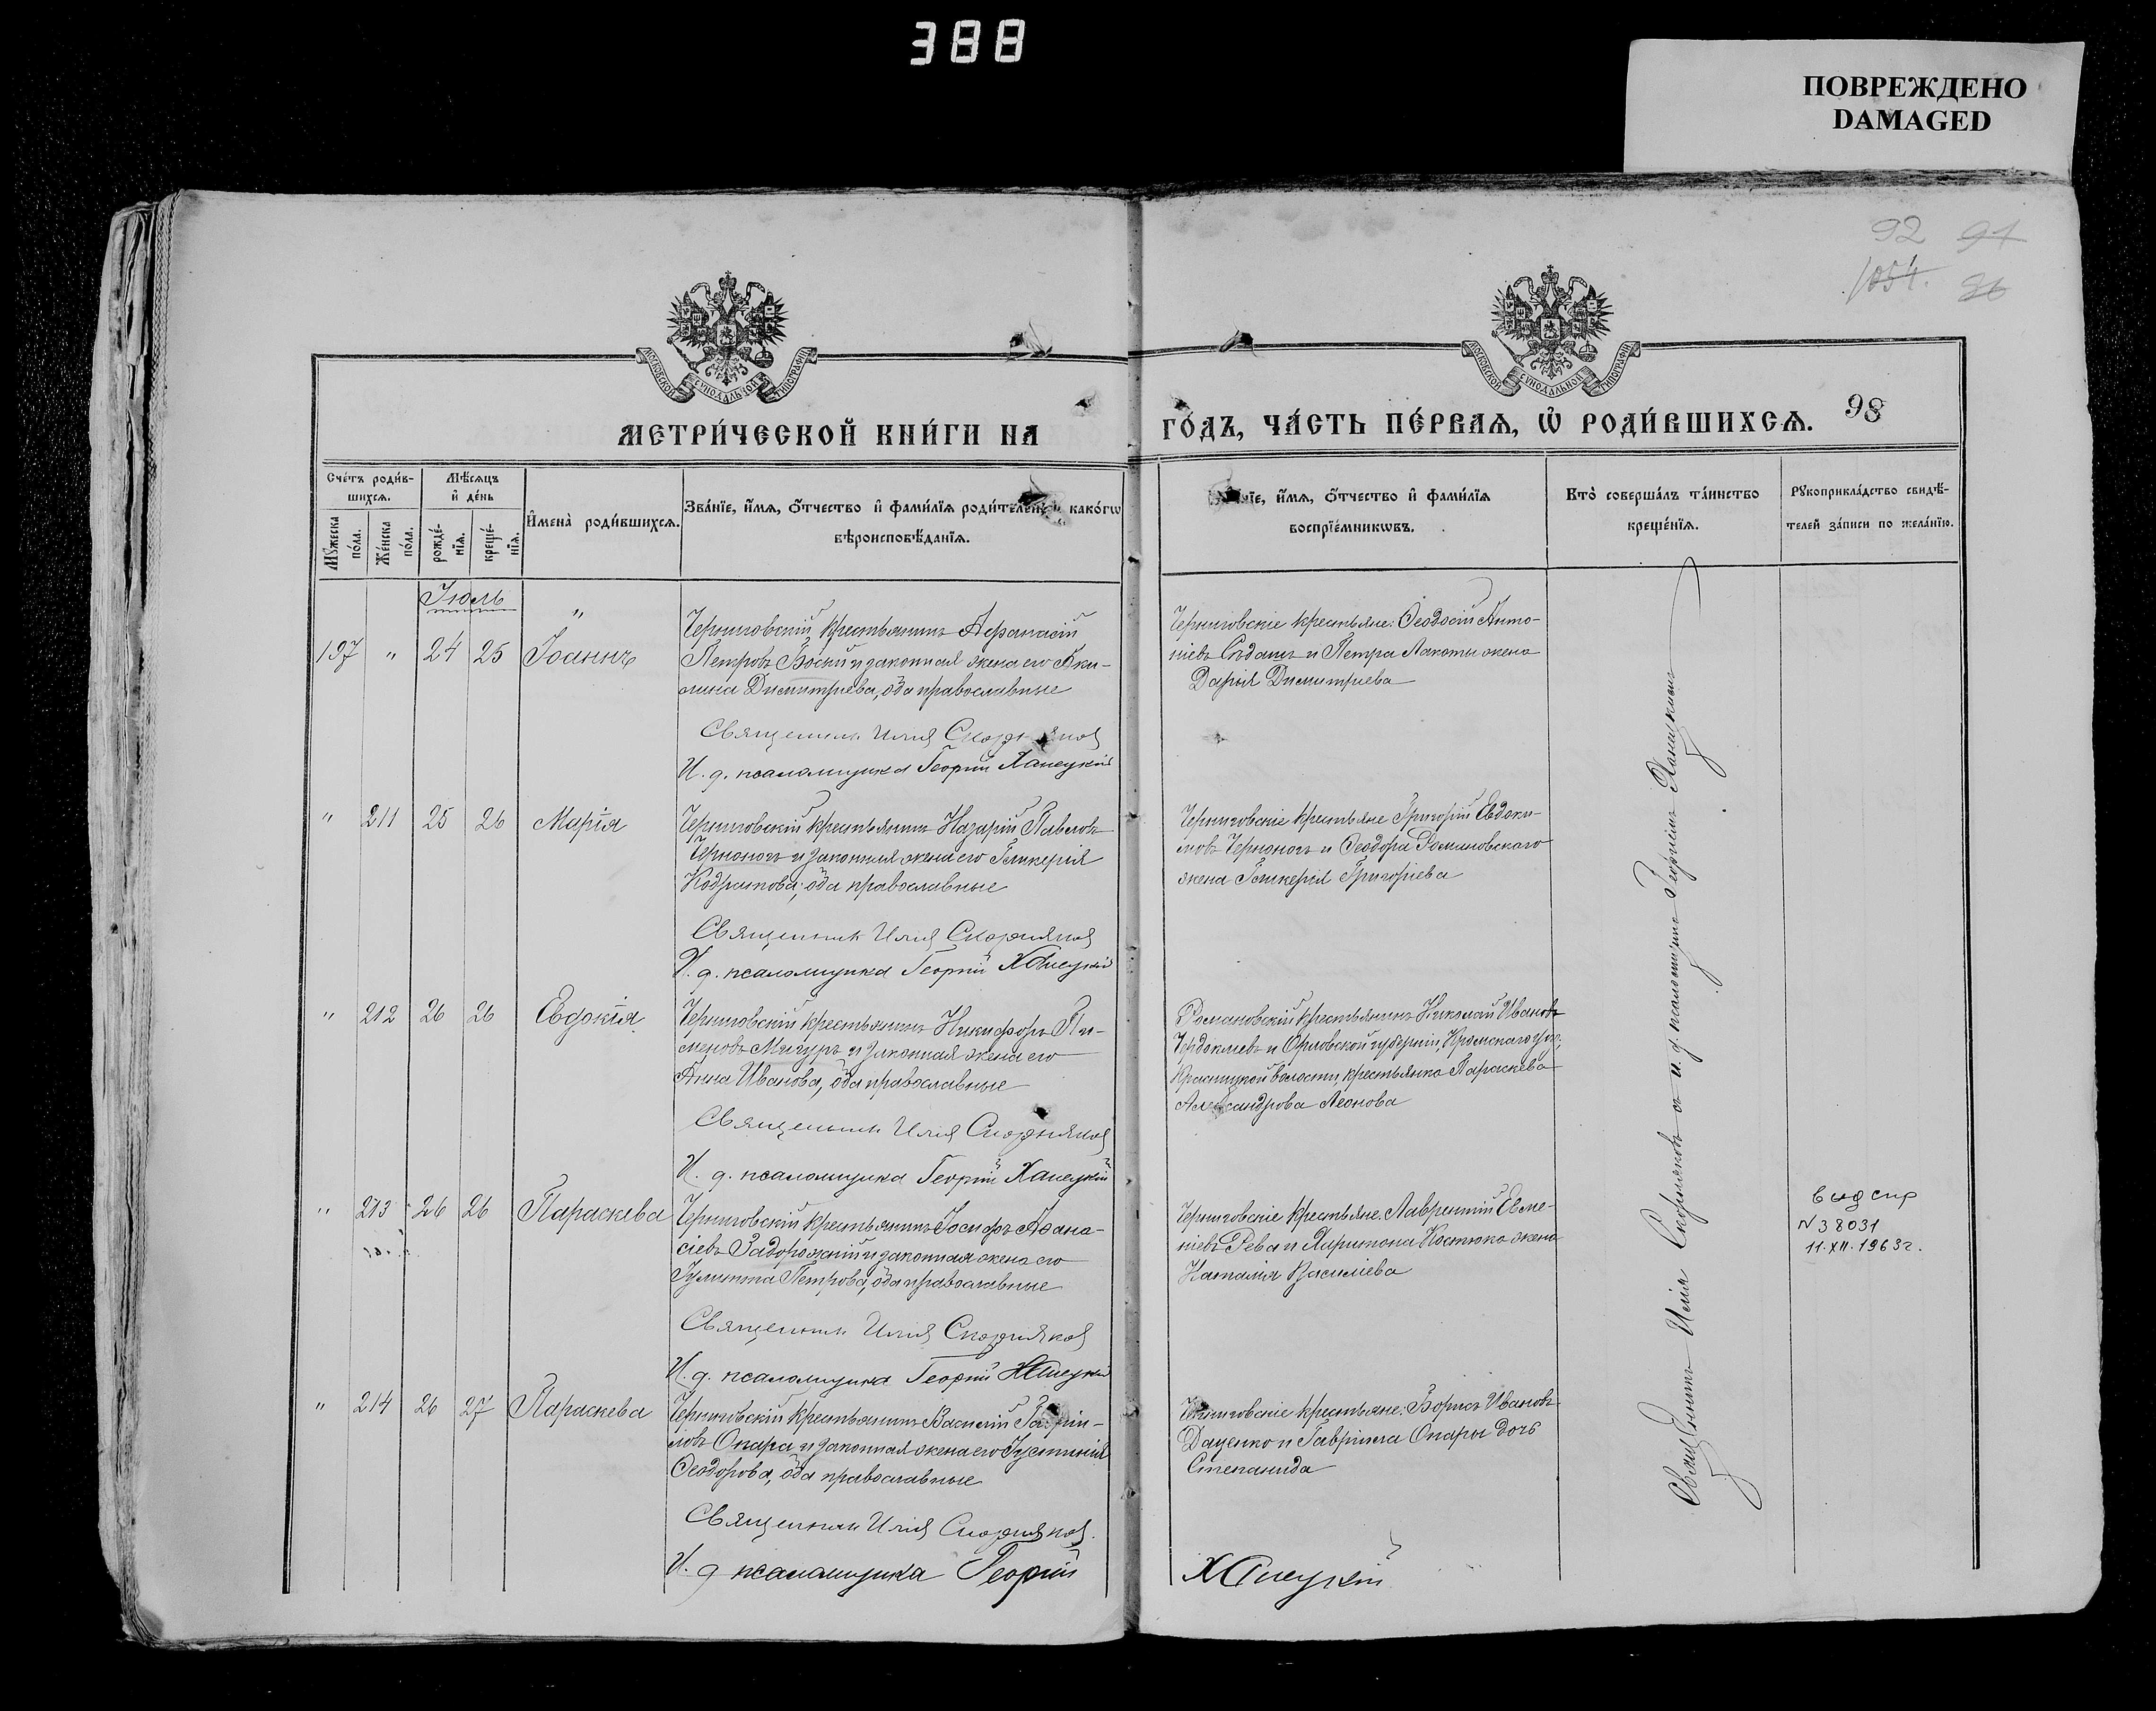 388
ПОВРЕЖДЕНО
DAMAGED
92 91
1054. 96
МОСКОВСКОЙ СѴНОДАЛЬНОЙ ТИПОГРАФІИ
МОСКОВСКОЙ СѴНОДАЛЬНОЙ ТИПОГРАФІИ
МЕТРИ́ЧЕСКОЙ КНИ́ГИ НА
ГО́ДЪ, ЧА́СТЬ ПЕ́РВАѦ, Ѡ҆ РОДИ́ВШИХСѦ.
98
Сче́тъ роди́в-
шихсѧ.
Мꙋ́жеска по́ла.
Же́нска по́ла.
Мѣ́сѧцъ
и҆ де́нь
рожде́-
нїѧ.
креще́-
нїѧ.
И҆мена̀ роди́вшихсѧ.
Зва́нїе, и҆́мѧ, ѻ҆́тчество и҆ фами́лїѧ роди́телей, и҆ како́гѡ
вѣроисповѣ́данїѧ.
нїе, и҆́мѧ, ѻ҆́тчество и҆ фами́лїѧ
воспрїе́мникѡвъ.
Кто̀ соверша́лъ та́инство
креще́нїѧ.
Рꙋкоприкла́дство свидѣ́-
телей за́писи по жела́нїю.
Іюль
197 " 24 25 Іоаннъ
Черниговскій крестьянинъ Афанасій
Петровъ Боскій и законная жена его Аки-
лина Димитріева, оба православные
Священникъ Илія Скорняковъ
И. д. псаломщика Георгій Ханецкій
Черниговскіе крестьяне: Ѳеодосій Анто-
ніевъ и Петра Лакоты жена
Дарья Димитріева
" 211 25 26 Марія
Черниговскій крестьянинъ Назарій Павловъ
Черноногъ и законная жена его Гликерія
Кодратова, оба православные
Священникъ Илія Скорняковъ
И. д. псаломщика Георгій Ханецкій
Черниговскіе крестьяне Григорій Евдоки-
мовъ Черноногъ и Ѳеодора Романовскаго
жена Гликерія Григоріева
" 212 26 26 Евдокія
Черниговскій крестьянинъ Никифоръ Пи-
меновъ Мичуръ и законная жена его
Анна Иванова, оба православные
Священникъ Илія Скорняковъ
И. д. псаломщика Георгій Ханецкій
Романовскій крестьянинъ Николай Ивановъ
и Орловской губерніи, Кромскаго уѣз.,
волости, крестьянка Параскева
Александрова Леонова
" 213 26 26 Параскева
Черниговскій крестьянинъ Іосифъ Аѳана-
сіевъ Задорожній и законная жена его
Іулитта Петрова, оба православные
Священникъ Илія Скорняковъ
И. д. псаломщика Георгій Ханецкій
Черниговскіе крестьяне: Лаврентій Евме-
ніевъ Рева и Харитона Костюка жена
Наталія Василіева
выд спр
N 38031
11.XII.1963г.
" 214 26 27 Параскева
Черниговскій крестьянинъ Василій Гавріи-
ловъ Опара и законная жена его Іустинія
Ѳеодорова, оба православные
Священникъ Илія Скорняковъ.
И. д псаломщика Георгій
Ханецкій
Черниговскіе крестьяне: Борисъ Ивановъ
Даценко и Гавріила Опары дочь
Степанида
Священникъ Илія Скорняковъ съ и. д. псаломщика Георгіемъ Ханецкимъ